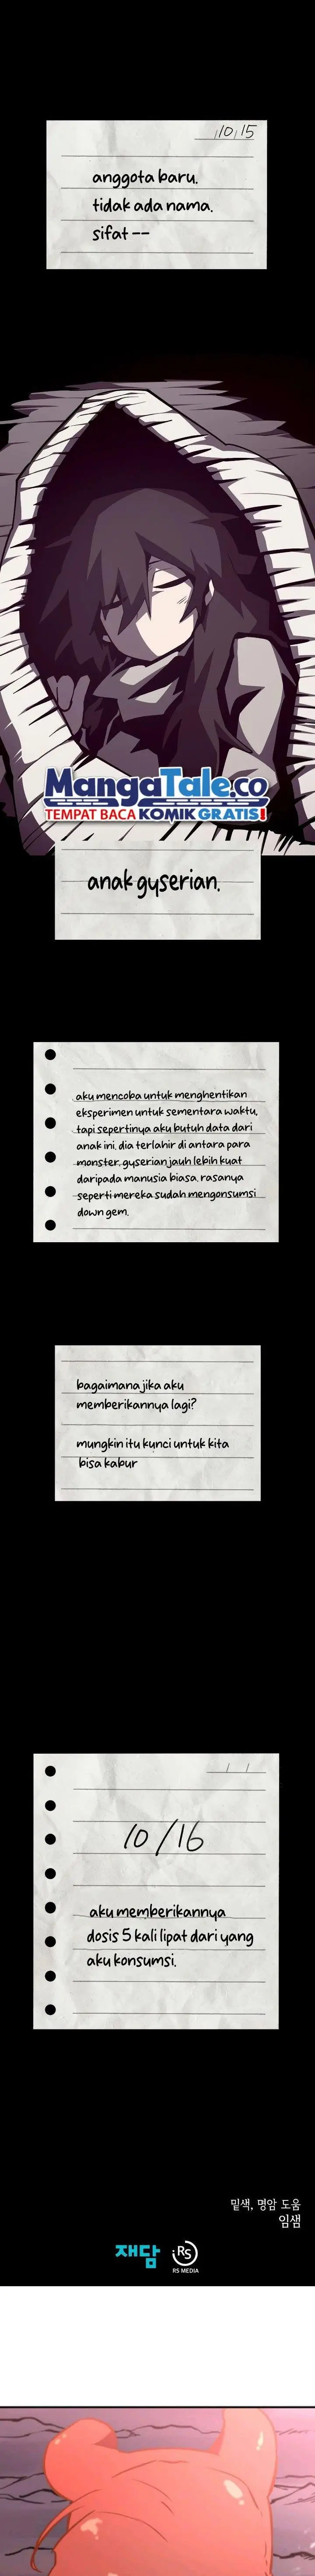 10/15
anggota baru.
tidak ada nama.
sifat --
MangaTale.co
TEMPAT BACA KOMIK GRATIS!
anak gyserian.
aku mencoba untuk menghentikan
eksperimen untuk sementara waktu,
tapi sepertinya aku butuh data dari
anak ini. dia terlahir di antara para
monster. gyserian jauh lebih kuat
daripada manusia biasa. rasanya
seperti mereka sudah mengonsumsi
down gem.
bagaimana jika aku
memberikannya lagi?
mungkin itu kunci untuk kita
bisa kabur
10/16
aku memberikannya
dosis 5 kali lipat dari yang
aku konsumsi.
밑색, 명암 도움
임샘
재담
RS
RS MEDIA